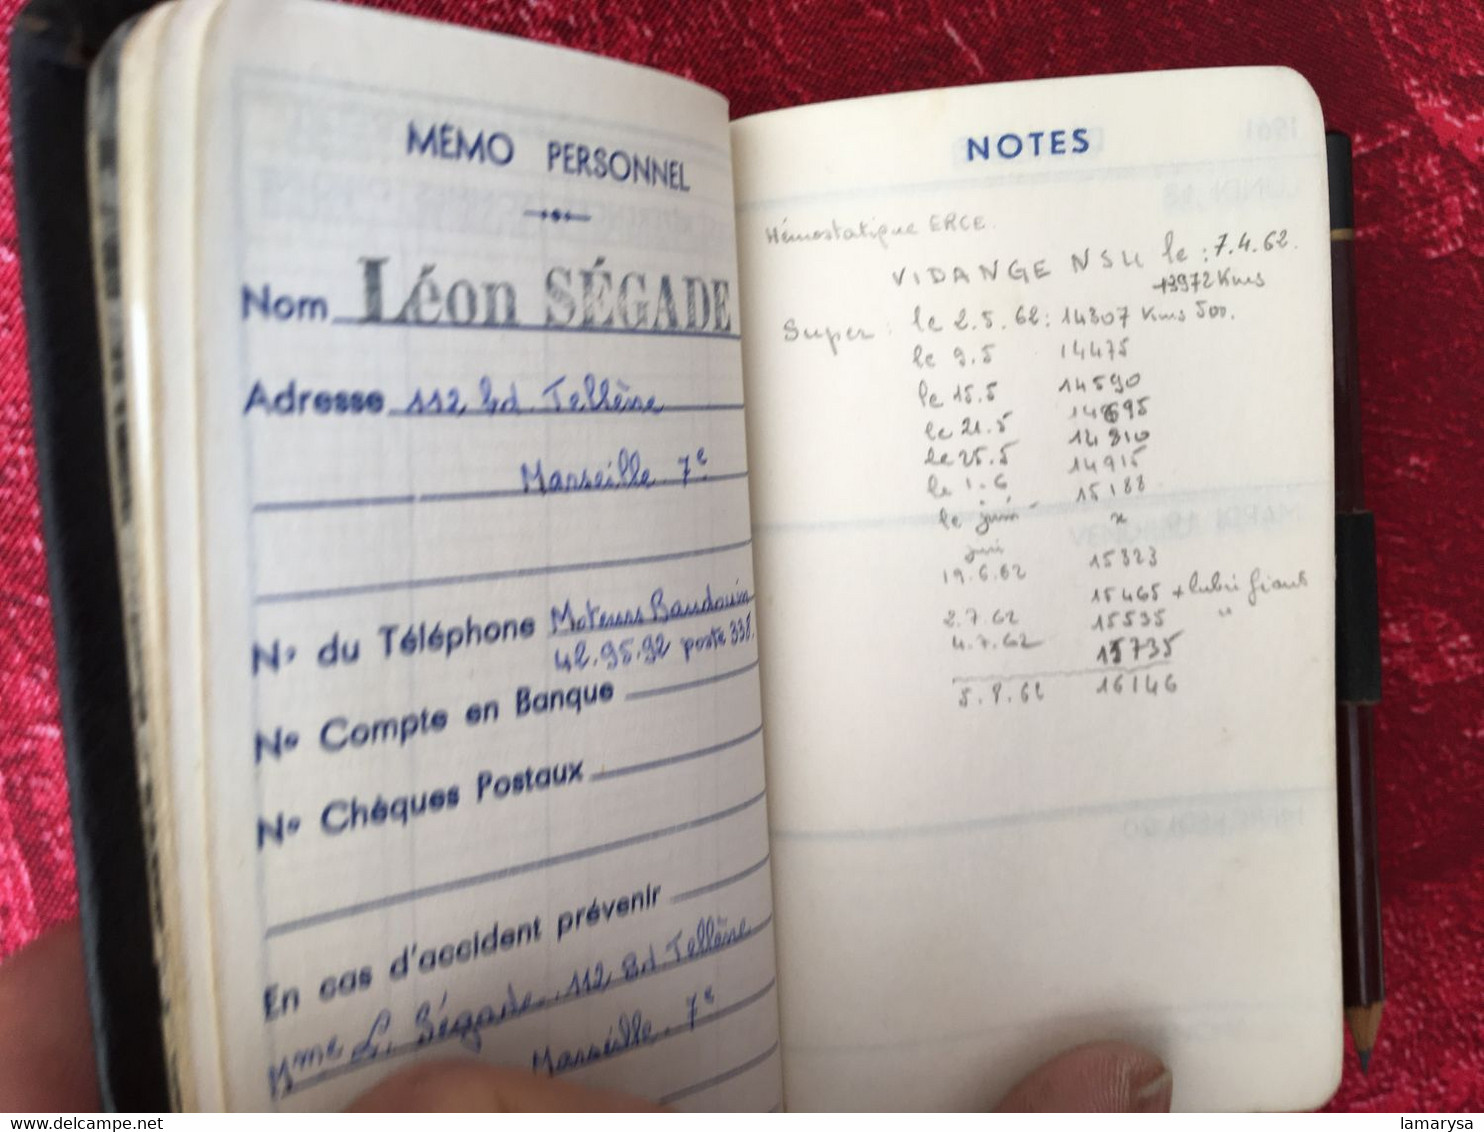 MÉMO PERSONNEL
Nom Léon SÉGADE
Adresse 112 Bd Tellène
Marseille 7e
No du Téléphone Moteurs Baudouin
42.95.92 poste 338.
No Compte en Banque
No Chèques Postaux
En cas d'accident prévenir
Mme L. Ségade 112 Bd Tellène
Marseille 7e
NOTES
Hémostatique ERCE.
VIDANGE NSU le : 7.4.62.
13972 Kms
Super : le 2.5.62 : 14307 Kms 500.
le 9.5 14475
le 15.5 14590
le 21.5 14695
le 25.5 14810
le 1.6 14915
le juin 15188
juin x
19.6.62 15323
15465 + lubri
2.7.62 15535 "
4.7.62 15735
5.8.62 16146
lamarysa